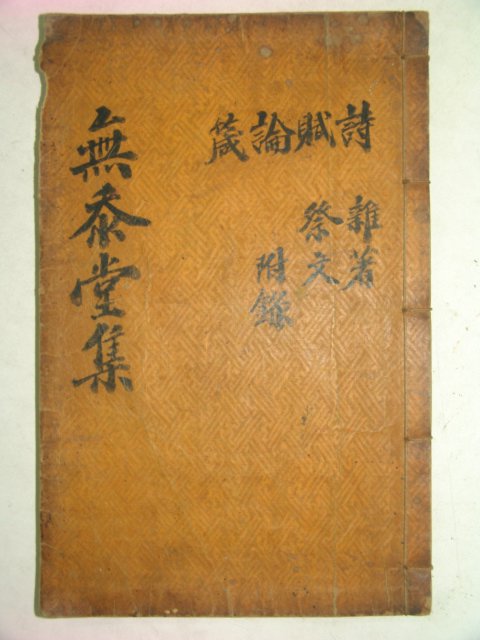 詩
賦
論
箴
雜著
祭文
附錄
無忝堂集